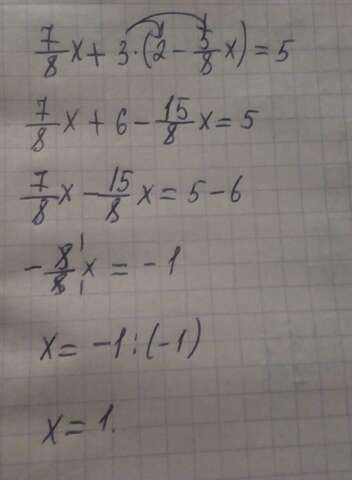 7/8 x + 3·(2 - 5/8 x) = 5
7/8 x + 6 - 15/8 x = 5
7/8 x - 15/8 x = 5 - 6
- 8/8 x = -1
x = -1 : (-1)
x = 1.